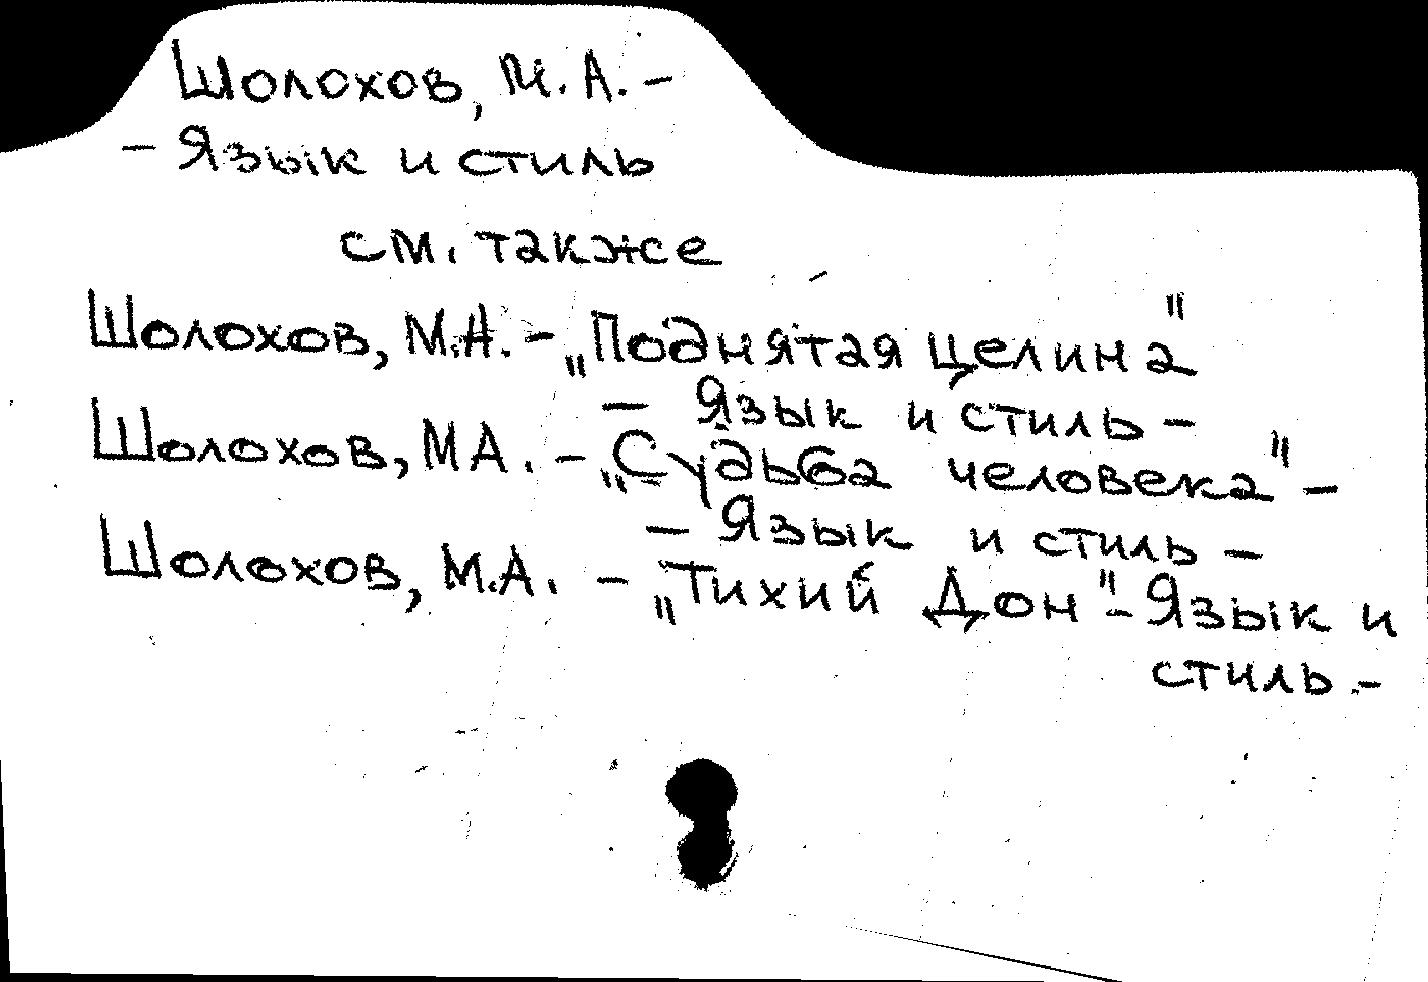 Шолохов, М. А. –
– Язык и стиль
см. также
Шолохов, М.А. – „Поднятая целина"
– Язык и стиль –
Шолохов, М А. – „Судьба человека" –
– Язык и стиль –
Шолохов, М.А. – „Тихий Дон" – Язык и
стиль –